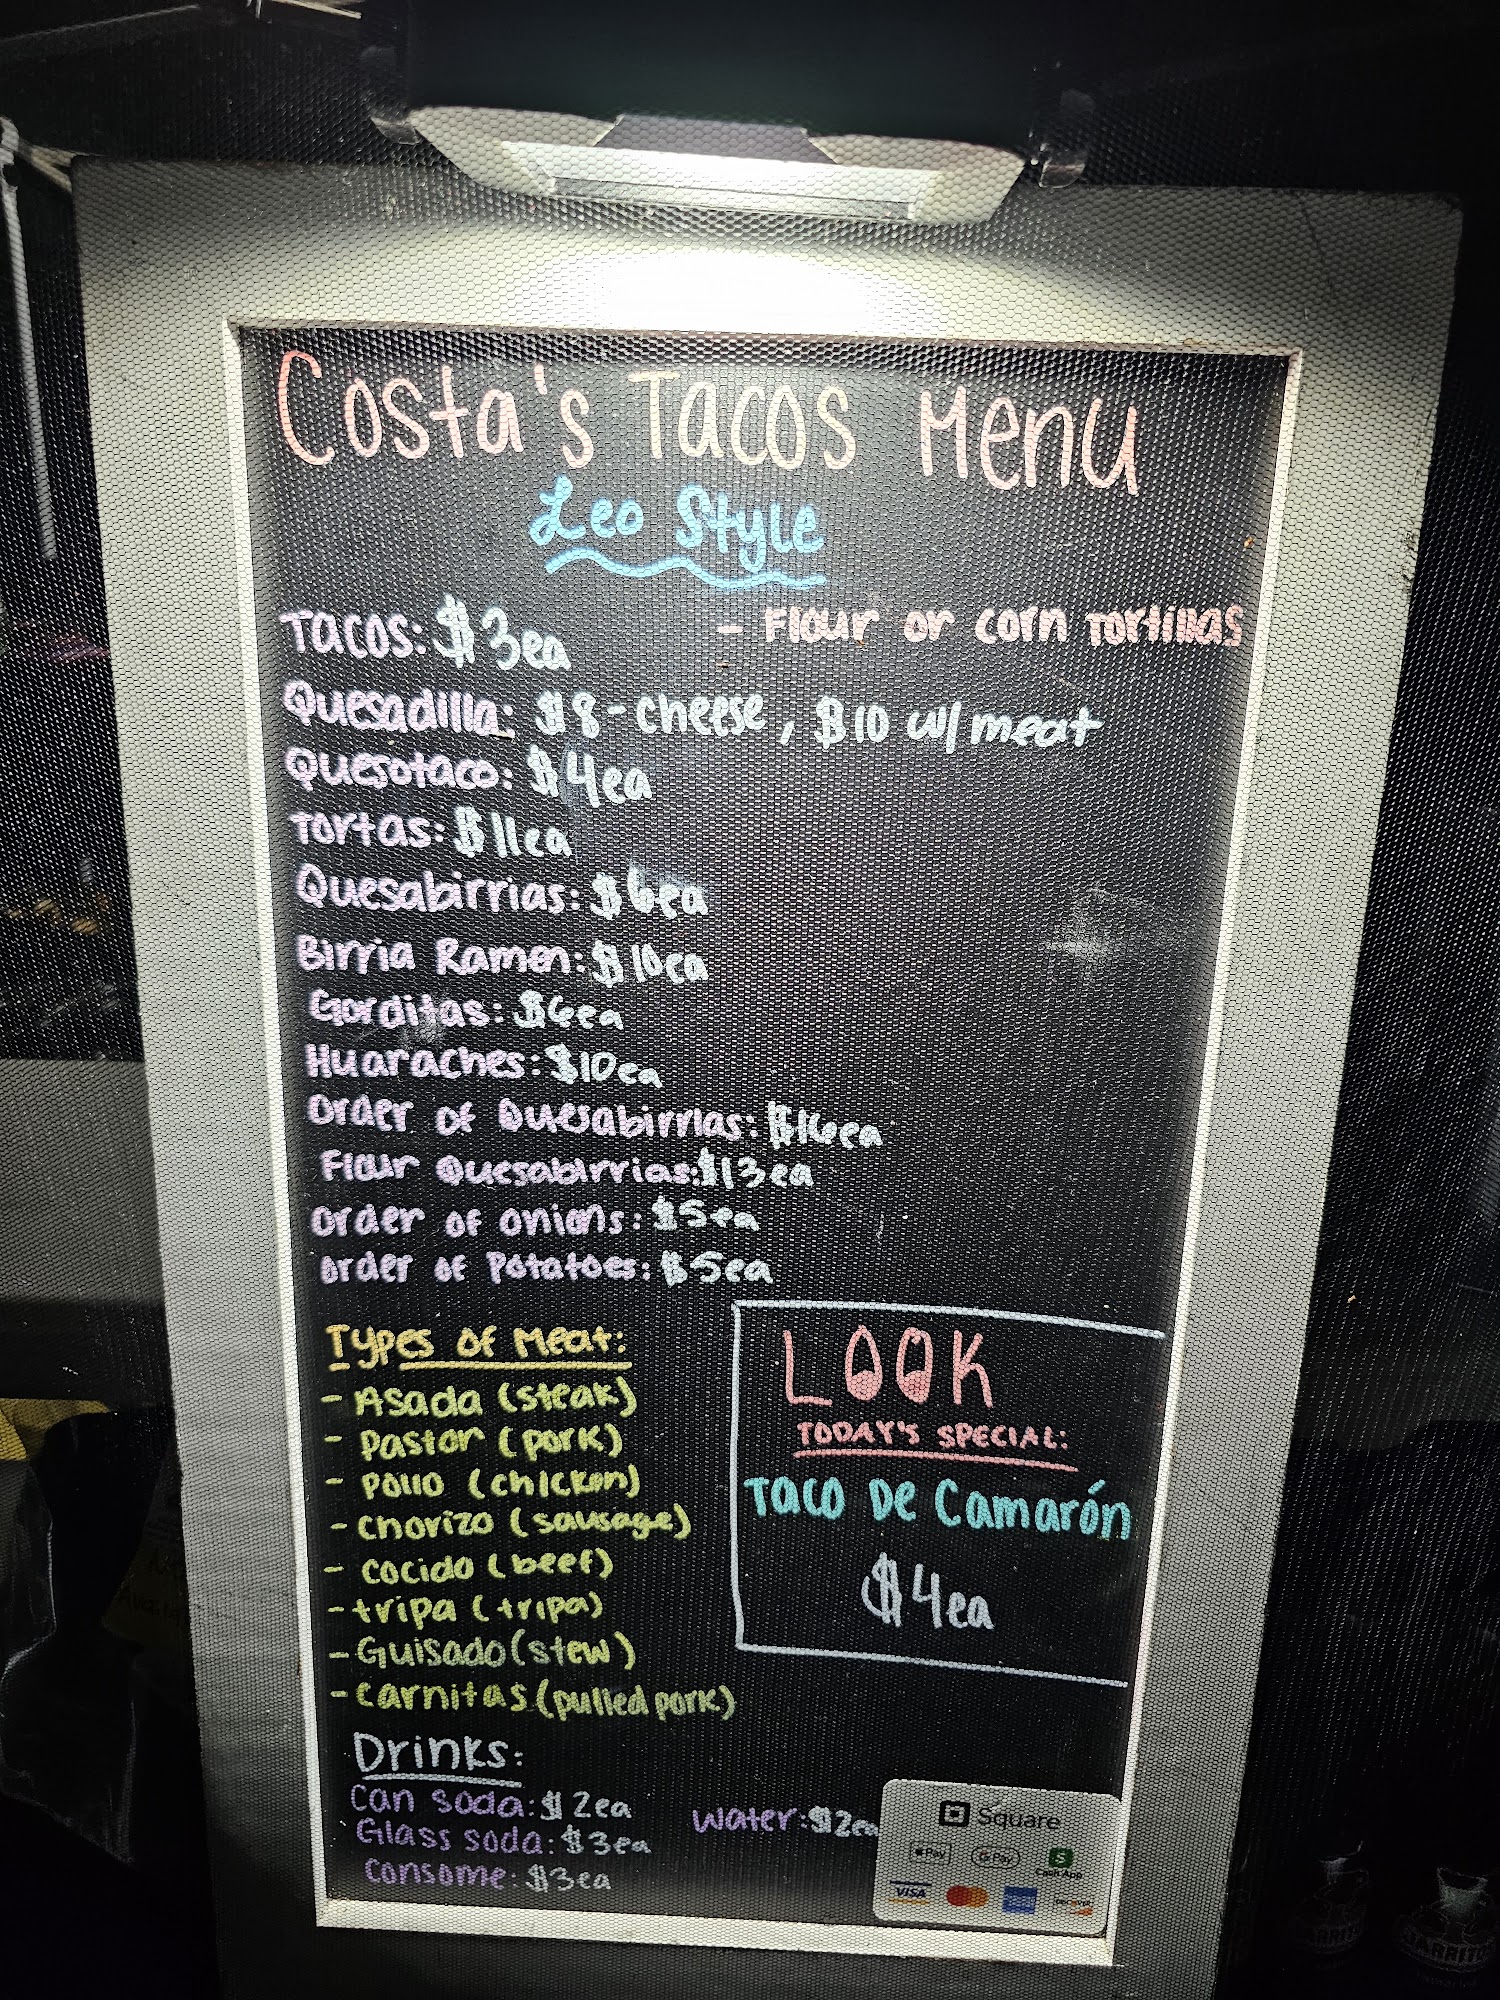 Costa's Tacos Menu
Leo Style
Tacos: $3ea - Flour or corn Tortillas
Quesadilla: $8-cheese, $10 w/meat
Quesotaco: $4ea
Tortas: $11ea
Quesabirrias: $6ea
Birria Ramen: $10ea
Gorditas: $6ea
Huaraches: $10ea
Order of Quesabirrias: $16ea
Flour Quesabirrias: $13ea
Order of onions: $5ea
Order of Potatoes: $5ea
Types of Meat:
- Asada (steak)
- Pastor (pork)
- Pollo (chicken)
- Chorizo (sausage)
- Cocido (beef)
- tripa (tripa)
- Guisado (stew)
- Carnitas (pulled pork)
LOOK
TODAY'S SPECIAL:
Taco De Camarón
$4ea
Drinks:
Can soda: $2ea
Glass soda: $3ea
Consome: $3ea
Water: $2ea
Square
Pay G Pay Cash App
VISA DISCOVER
JARRITOS